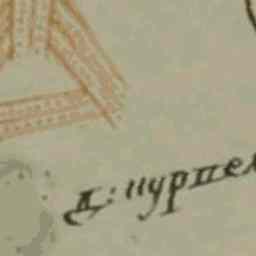 д: пурпел